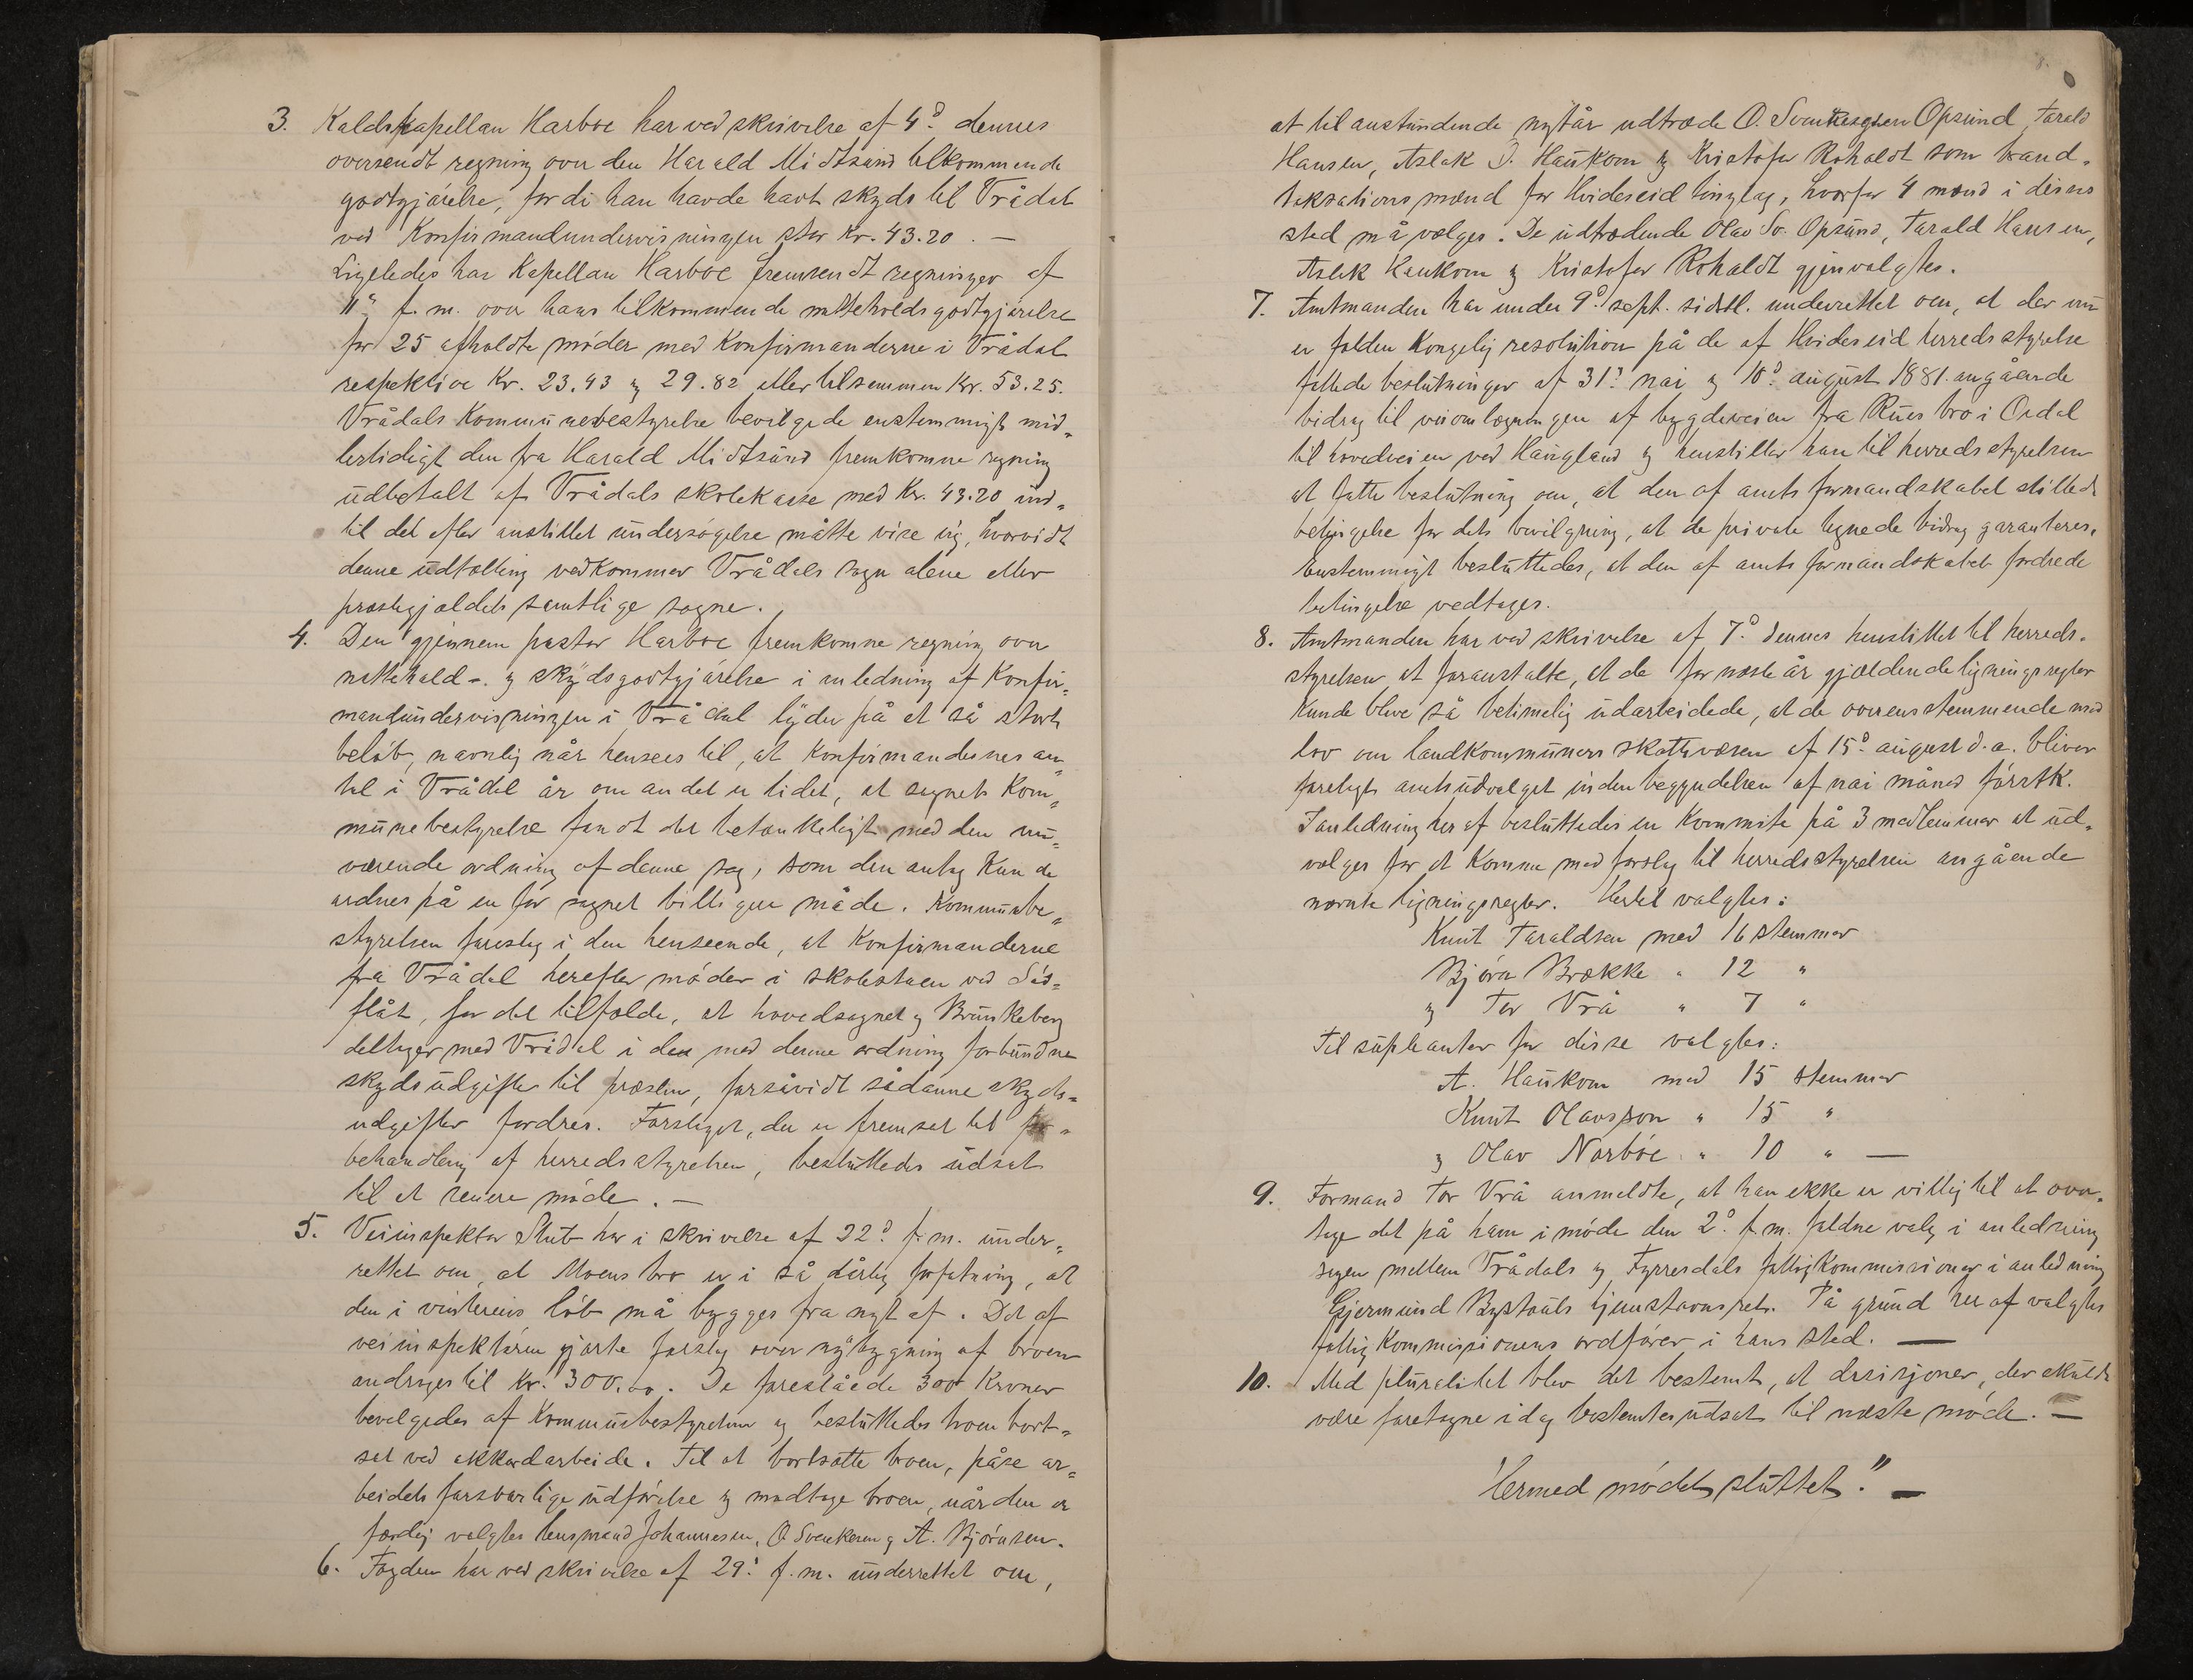 3. Kaldskapellan Harboe har ved skrivelse af 4de dennes
oversendt regning over den Harald Midtsund tilkommende
godtgjørelse, fordi han havde havt skyds til Vrådal
ved Konfirmandundervisningen stor Kr. 43.20. —
Ligeledes har Kapellan Harboe fremsendt regninger af
11te f. m. over hans tilkommende natteholdsgodtgjørelse
for 25 afholdte møder med Konfirmanderne i Vrådal
respektive Kr. 23.43 og 29.82 eller tilsammen Kr. 53.25.
Vrådals Kommunebestyrelse bevilgede enstemmigt mid„
lertidigt den fra Harald Midtsund fremkomne regning
udbetalt af Vrådals skolekasse med Kr. 43.20 ind„
til det efter anstillet undersøgelse måtte vise sig, hvorvidt
denne udtælling vedkommer Vrådals sogn alene eller
præstegjældets samtlige sogne.
4. Den gjennem pastor Harboe fremkomne regning over
nattehold-. og skydsgodtgjørelse i anledning af Konfir„
mandundervisningen i Vrådal lyder på et så stort
beløb, navnlig når hensees til, at Konfirmandernes an„
tal i Vrådal år om andet er lidet, at sognets Kom„
munebestyrelse fandt det betænkeligt med den nu„
værende ordning af denne sag, som den antog Kunde
ordnes på en for sognet billigere måde. Kommunebe„
styrelsen foreslog i den henseende, at Konfirmanderne
fra Vrådal herefter møder i skolestuen ved Sød„
flåt, for det tilfælde, at hovedsognet og Brunkeberg
deltager med Vrådal i den med denne ordning forbundne
skydsudgifter til præsten, forsåvidt sådanne skyds„
udgifter fordres. Forslaget, der er fremsat til for„
behandling af herredsstyrelsen, besluttedes udsat
til et senere møde. —
5. Veiinspektør Stub har i skrivelse af 22de f. m. under„
rettet om, at Moens bro er i så dårlig forfatning, at
den i vinterens løb må bygges fra nyt af. Det af
veiinspektøren gjorte forslag over nybygning af broen
andrager til Kr. 300.00. De foreslåede 300 Kroner
bevilgedes af Kommunebestyrelsen og besluttedes broen bort„
sat ved akkordarbeide. Til at bortsætte broen, påse ar„
beidets forsvarlige udførelse og modtage broen, når den er
færdig valgtes lensmand Johannesen, O Svenkesen og A. Bjørnsen.
6. Fogden har ved skrivelse af 29de f. m. underrettet om,
at til anstundende nytår udtræde O. Svenkesen Opsund, Tarald
Hansen, Aslak D. Haukom og Kristofer Roholdt som brand„
taksationsmænd for Hvideseid tinglag, hvorfor 4 mænd i disses
sted må vælges. De udtrædende Olav Sv. Opsund, Tarald Hansen,
Aslak Haukom og Kristofer Roholdt gjenvalgtes.
7. Amtmanden har under 9de sept. sidstl. underrettet om, at der nu
er falden Kongelig resolution på de af Hvideseid herredsstyrelse
fattede beslutninger af 31te mai og 10de august 1881 angående
bidrag til veiomlægningen af bygdeveien fra Rues bro i Ordal
til hovedveien ved Haugland og henstiller han til herredsstyrelsen
at fatte beslutning om, at den af amtsformandskabet stillede
betingelse for dets bevilgning, at de private tegnede bidrag garanteres.
Enstemmigt besluttedes, at den af amtsformandskabet fordrede
betingelse vedtages.
8. Amtmanden har ved skrivelse af 7de dennes henstillet til herreds„
styrelsen at foranstalte, at de for næste år gjældende ligningsregler
Kunde blive så betimelig udarbeidede, at de overensstemmende med
lov om landkommuners skattevæsen af 15de august d. a. bliver
forelagt amtsudvalget inden begyndelsen af mai måned førstk.
I anledning her af besluttedes en Kommite på 3 medlemmer at ud„
vælges for at komme med forslag til herredsstyrelsen angående
nævnte ligningsregler. Hertil valgtes:
Knut Taraldsen med 16 stemmer
Bjørn Brække „ 12 „
og Tor Vrå „ 7 „
Til supleanter for disse valgtes:
A. Haukom med 15 stemmer
Knut Olavsson „ 15 „
og Olav Norbøe „ 10 „ —
9. Formand Tor Vrå anmeldte, at han ikke er villig til at over„
tage det på ham i møde den 2de f. m. faldne valg i anledning
sagen mellem Vrådals og Fyrresdals fattigkommissioner i anledning
Gjermund Bystauls hjemstavnsret. På grund her af valgtes
fattigkommissionens ordfører i hans sted. —
10. Med pluralitet blev det bestemt, at decisjoner, der skulde
være foretagne idag bestemtes udsat til næste møde. —
"Hermed mødet sluttet." —